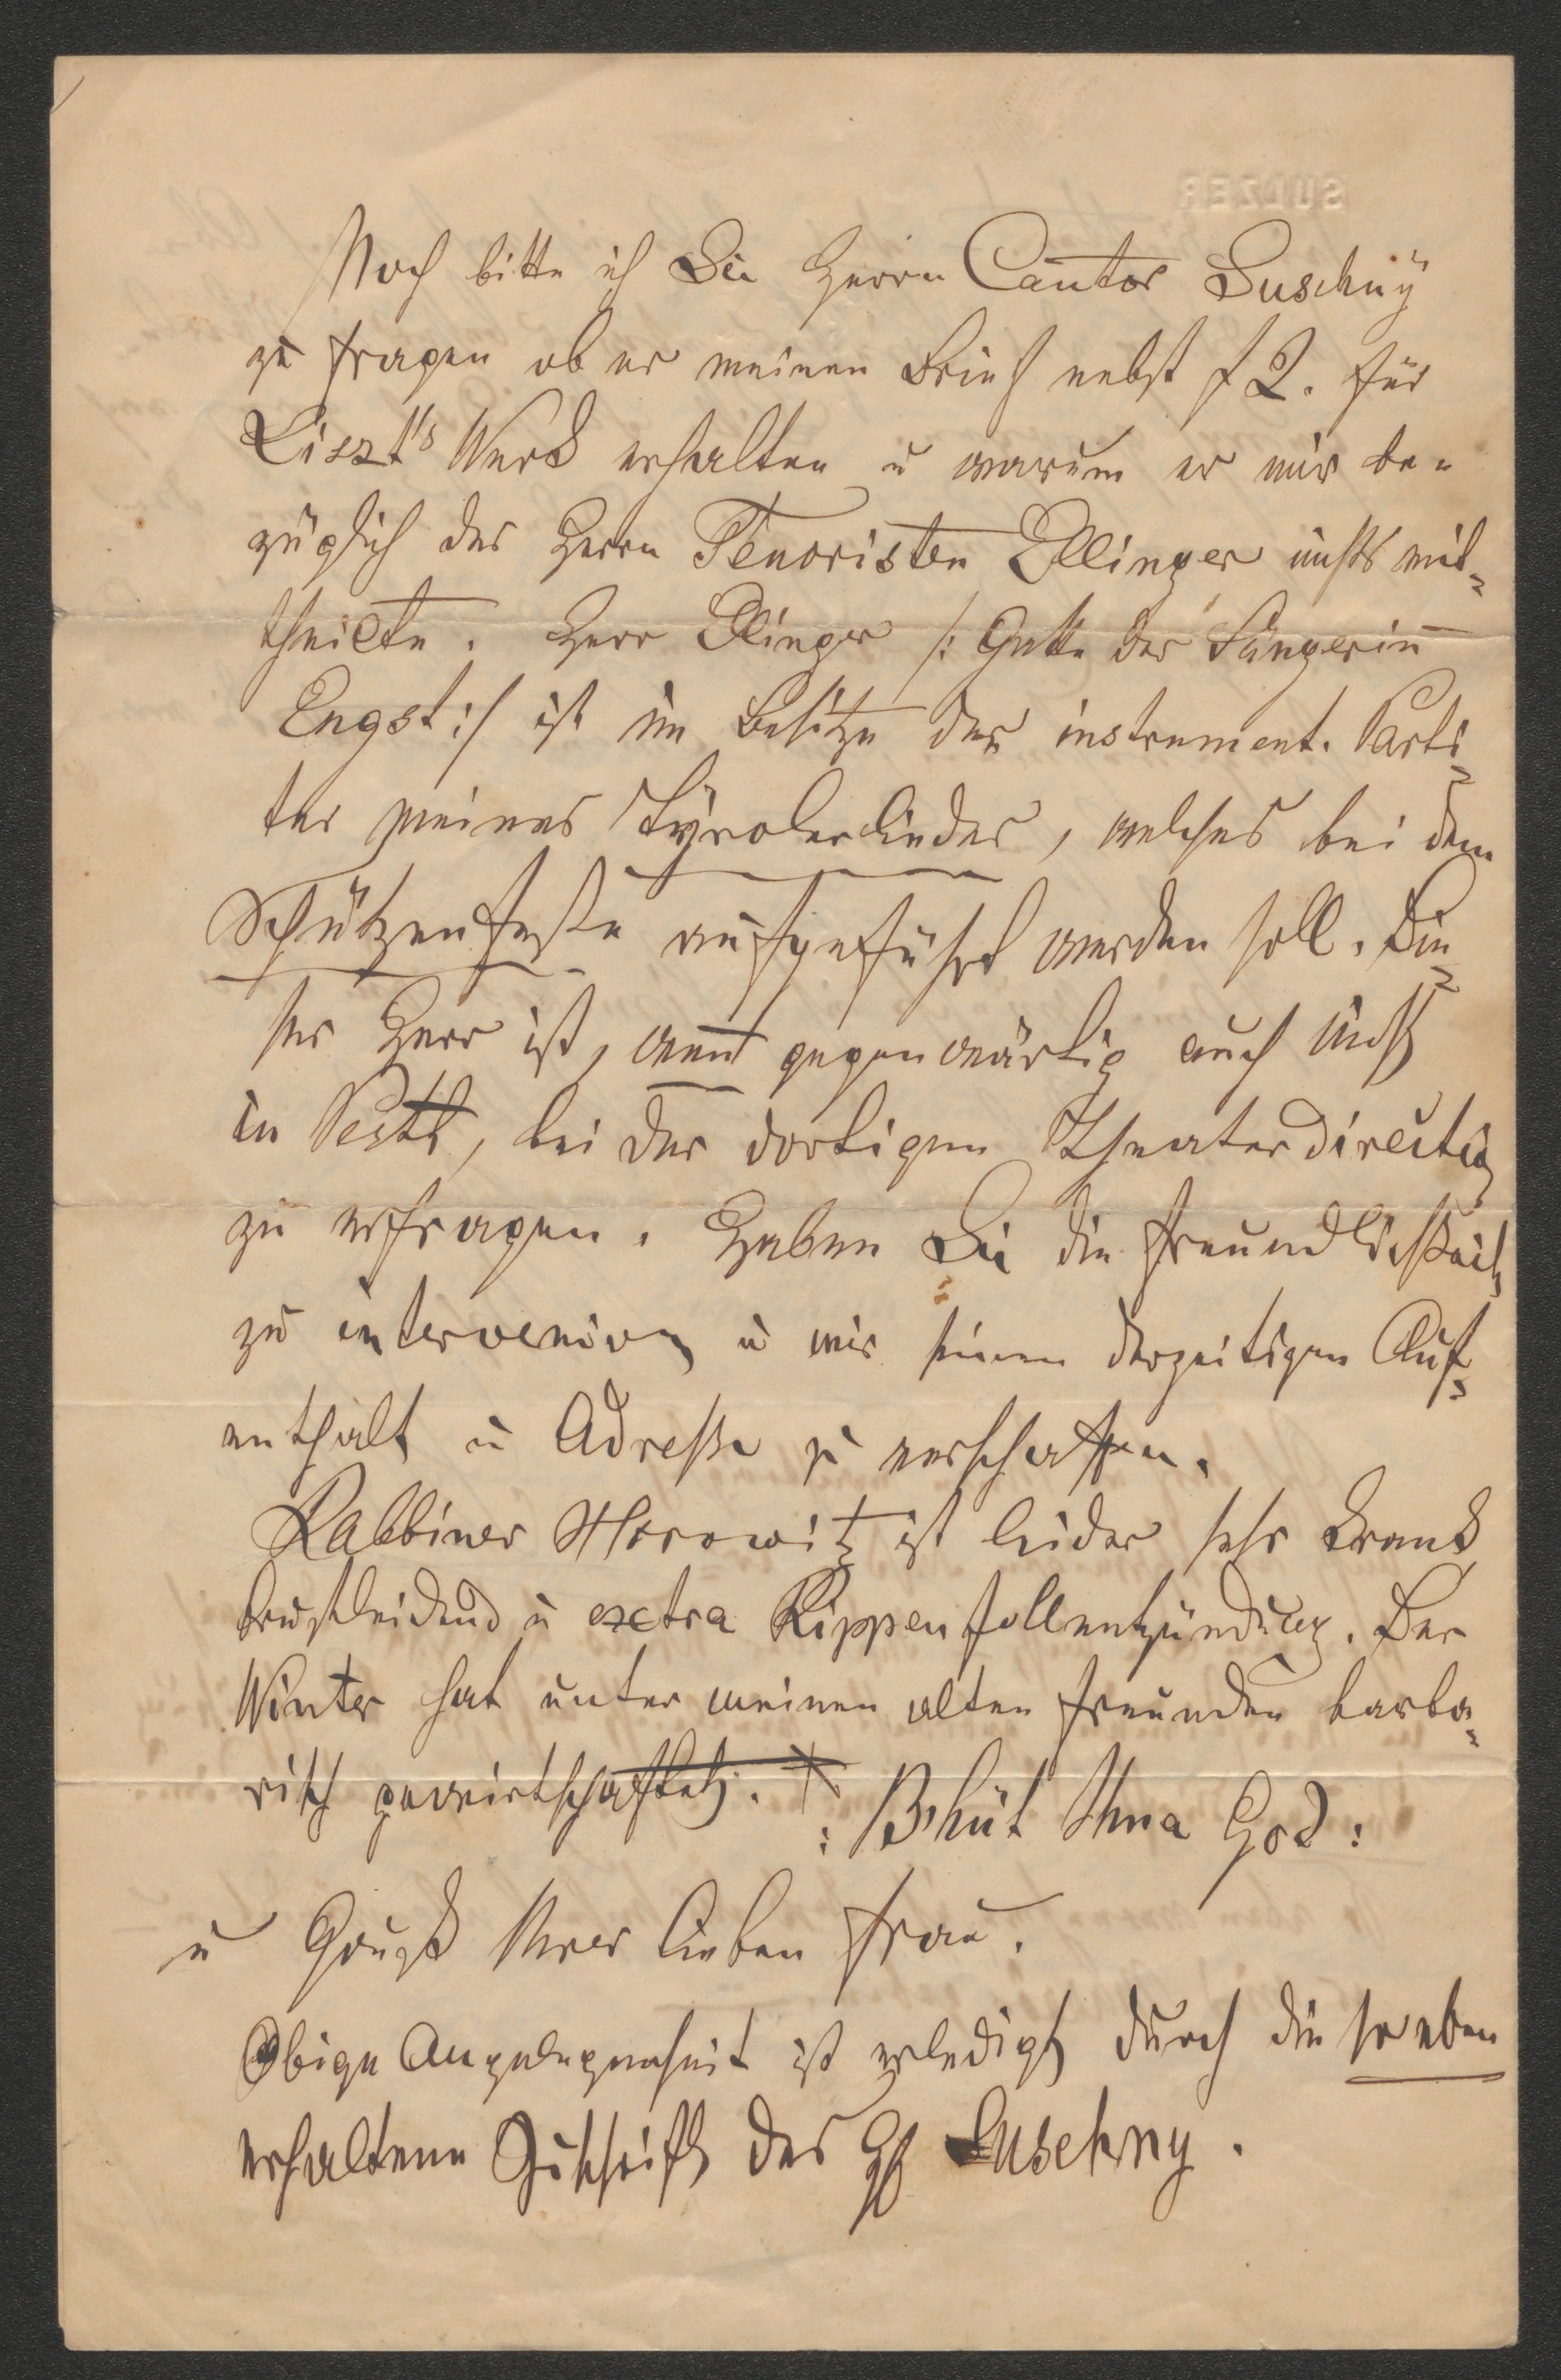 SULZER
Noch bitte ich Sie Herrn Cantor Luschny
zu fragen ob er meinen Brief nebst f 2. für
Liszt's Werk erhalten u warum er mir be-
züglich des Herrn Tenoristen Ellinger nichts mit-
theilte. Herr Ellinger /: Gatte der Sängerin
Engst :/ ist im Besitze der instrument. Parti-
tur meines Tyrolerliedes, welches bei dem
Schützenfeste aufgeführt werden soll. Die-
ser Herr ist, wenn gegenwärtig auch nicht
in Pesth, bei der dortigen Theaterdirection
zu erfragen. Haben Sie die Freundlichkeit
zu interveniren u mir seinen derzeitigen Auf-
enthalt u Adresse zu verschaffen.
Rabbiner Horowitz ist leider sehr krank
brustleidend u extra Rippenfellentzündung. Der
Winter hat unter meinen alten Freunden barba-
risch gewirtschaftet.
: B'hüt Ihna God :
u Ihrer lieben Frau.
Obige Angelegenheit ist erledigt durch die soeben
erhaltene Zuschrift des H Luschny.